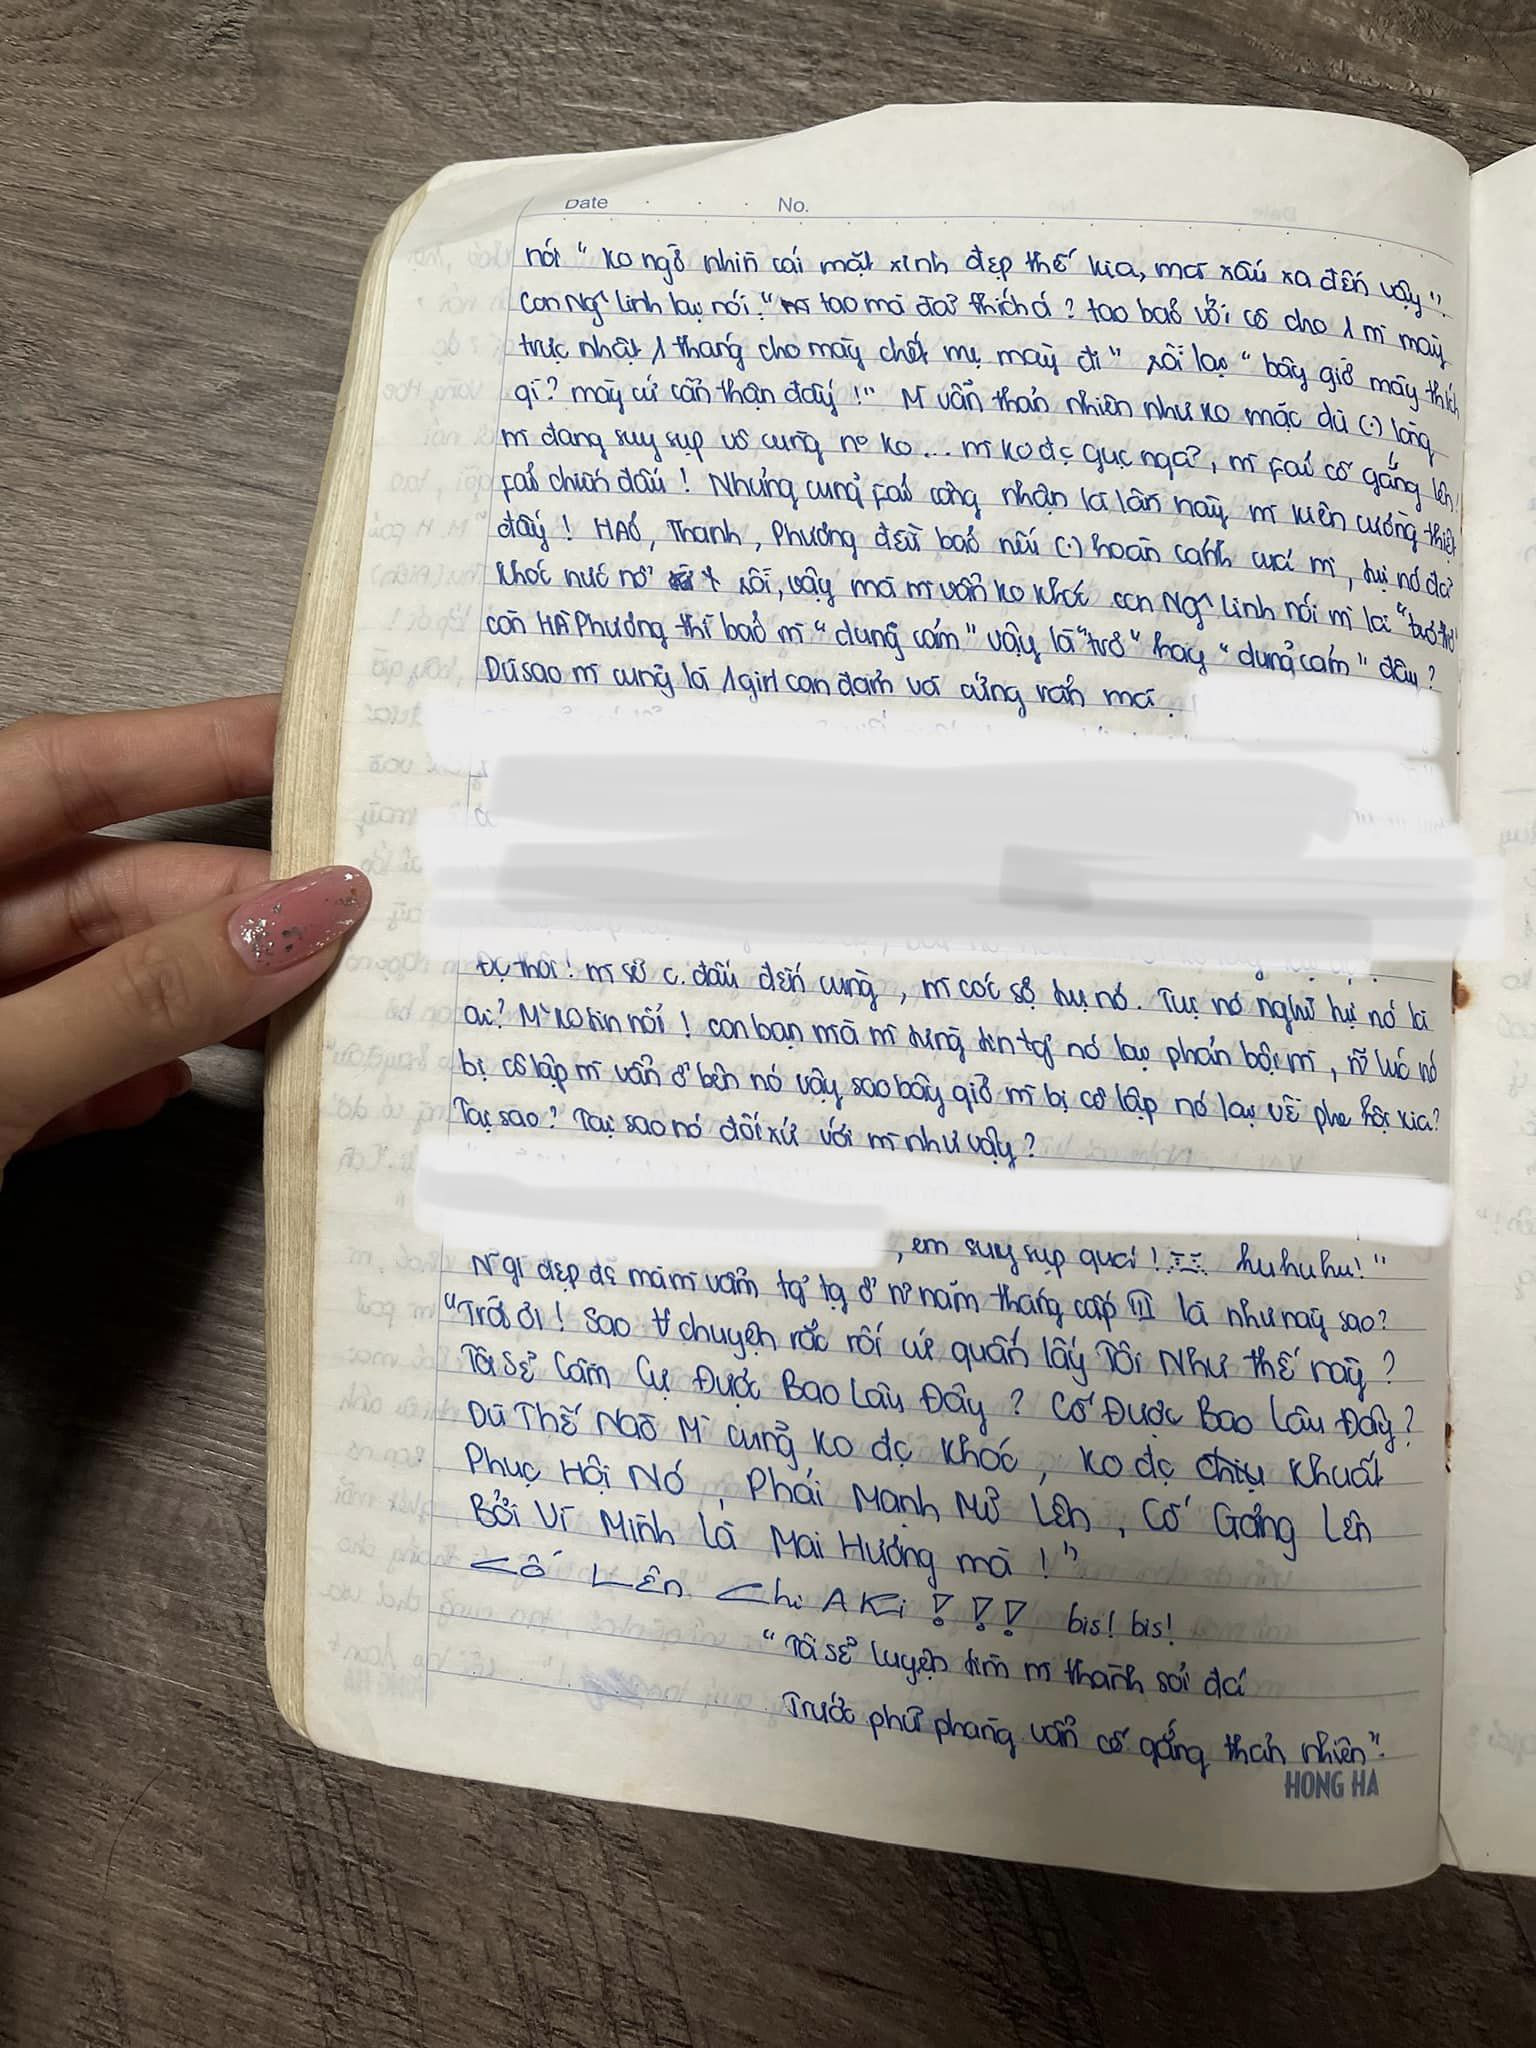 Date No.
nói "ko ngờ nhìn cái mặt xinh đẹp thế kia, mà xấu xa đến vậy".
Con Ngˆ Linh lại nói: "tao mà đã thích á? tao bảo với cô cho 1 mì mày
trực nhật 1 tháng cho mày chết mẹ mày đi" rồi lại "bây giờ mày thích
gì? mày cứ cẩn thận đấy!" M̀ vẫn thản nhiên như ko mặc dù (.) lòng
mì đang suy sụp vô cùng nº ko... mì ko đc gục ngã, mì fải cố gắng lên!
fải chiến đấu! Nhưng cũng fải công nhận là lần này mì kiên cường thiệt
đấy! HẢo, Thanh, Phương đều bảo nếu (.) hoàn cảnh của mì, tụi nó đã
khóc nức nở rồi, vậy mà mì vẫn ko khóc con Ngˆ Linh nói mì là "trơ trơ"
còn HÀ Phương thì bảo mì "dũng cảm" vậy là "trơ" hay "dũng cảm" đây?
Dù sao mì cũng là 1 girl can đảm và cứng rắn mà.
Đc thôi! mì sẽ c. đấu đến cùng, mì cóc sợ tụi nó. Tụi nó nghĩ tụi nó là
ai? M̀ ko tin nổi! con bạn mà mì từng tin tg̉ nó lại phản bội mì, ñ lúc nó
bị cô lập mì vẫn ở bên nó vậy sao bây giờ mì bị cô lập nó lại về phe hội kia?
Tại sao? Tại sao nó đối xử với mì như vậy?
, em suy sụp quá! hu hu hu!"
N̄ gì đẹp đẽ mà mì vẫn tg̉ tg ở nº năm tháng cấp III là như này sao?
"Trời ơi! Sao ∀ chuyện rắc rối cứ quấn lấy Tôi Như thế này?
Tôi sẽ Cầm Cự Được Bao Lâu Đây? Cố Được Bao Lâu Đây?
Dù Thế Nào M̀ cũng ko đc khóc, ko đc chịu khuất
Phục Hội Nó, Phải Mạnh Mẽ Lên, Cố Gắng Lên
Bởi Vì Mình Là Mai Hương mà!"
Cố Lên Chị AKi!!! bis! bis!
"Tôi sẽ luyện tim mì thành sỏi đá
Trước phũ phàng vẫn cố gắng thản nhiên".
HONG HA